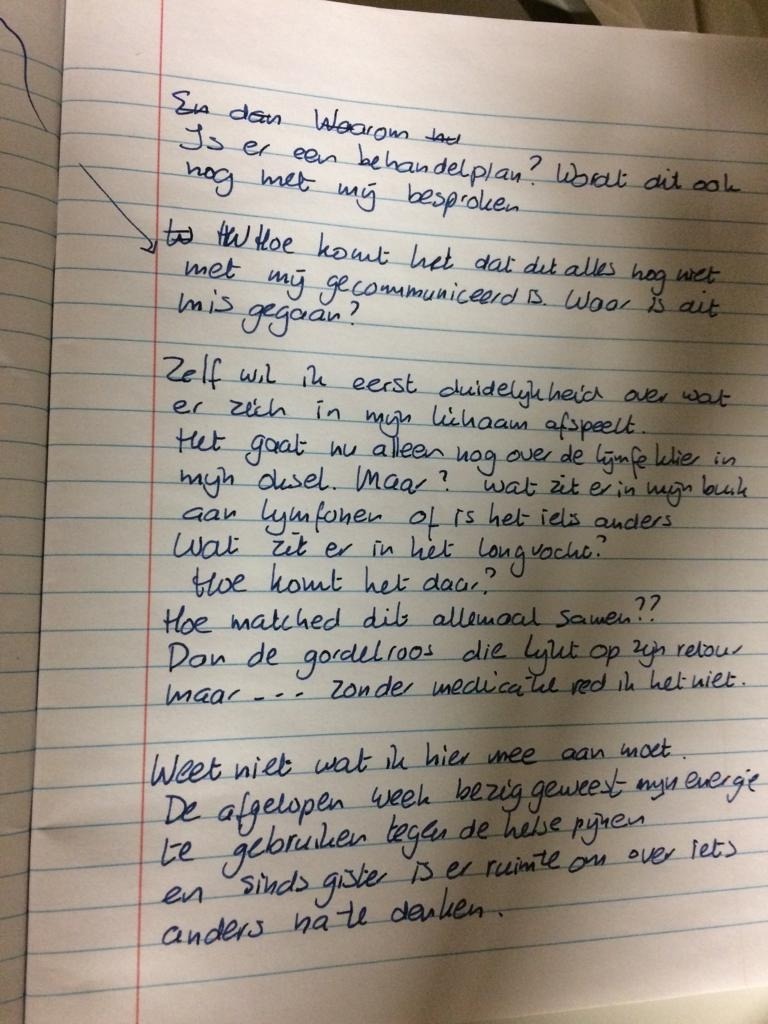 En dan Waarom nu
Is er een behandelplan? Wordt dit ook
nog met mij besproken
W HW Hoe komt het dat dit alles nog niet
met mij gecommuniceerd is. Waar is dit
mis gegaan?
Zelf wil ik eerst duidelijkheid over wat
er zich in mijn lichaam afspeelt.
Het gaat nu alleen nog over de lijmfe klier in
mijn oksel. Maar? wat zit er in mijn buik
aan lymfonen of is het iets anders
Wat zit er in het longvocht?
Hoe komt het daar?
Hoe matched dit allemaal samen??
Dan de gordelroos die lijkt op zijn retour
maar --- zonder medicatie red ik het niet.
Weet niet wat ik hier mee aan moet.
De afgelopen week bezig geweest mijn energie
te gebruiken tegen de helse pijnen
en sinds gister is er ruimte om over iets
anders na te denken.